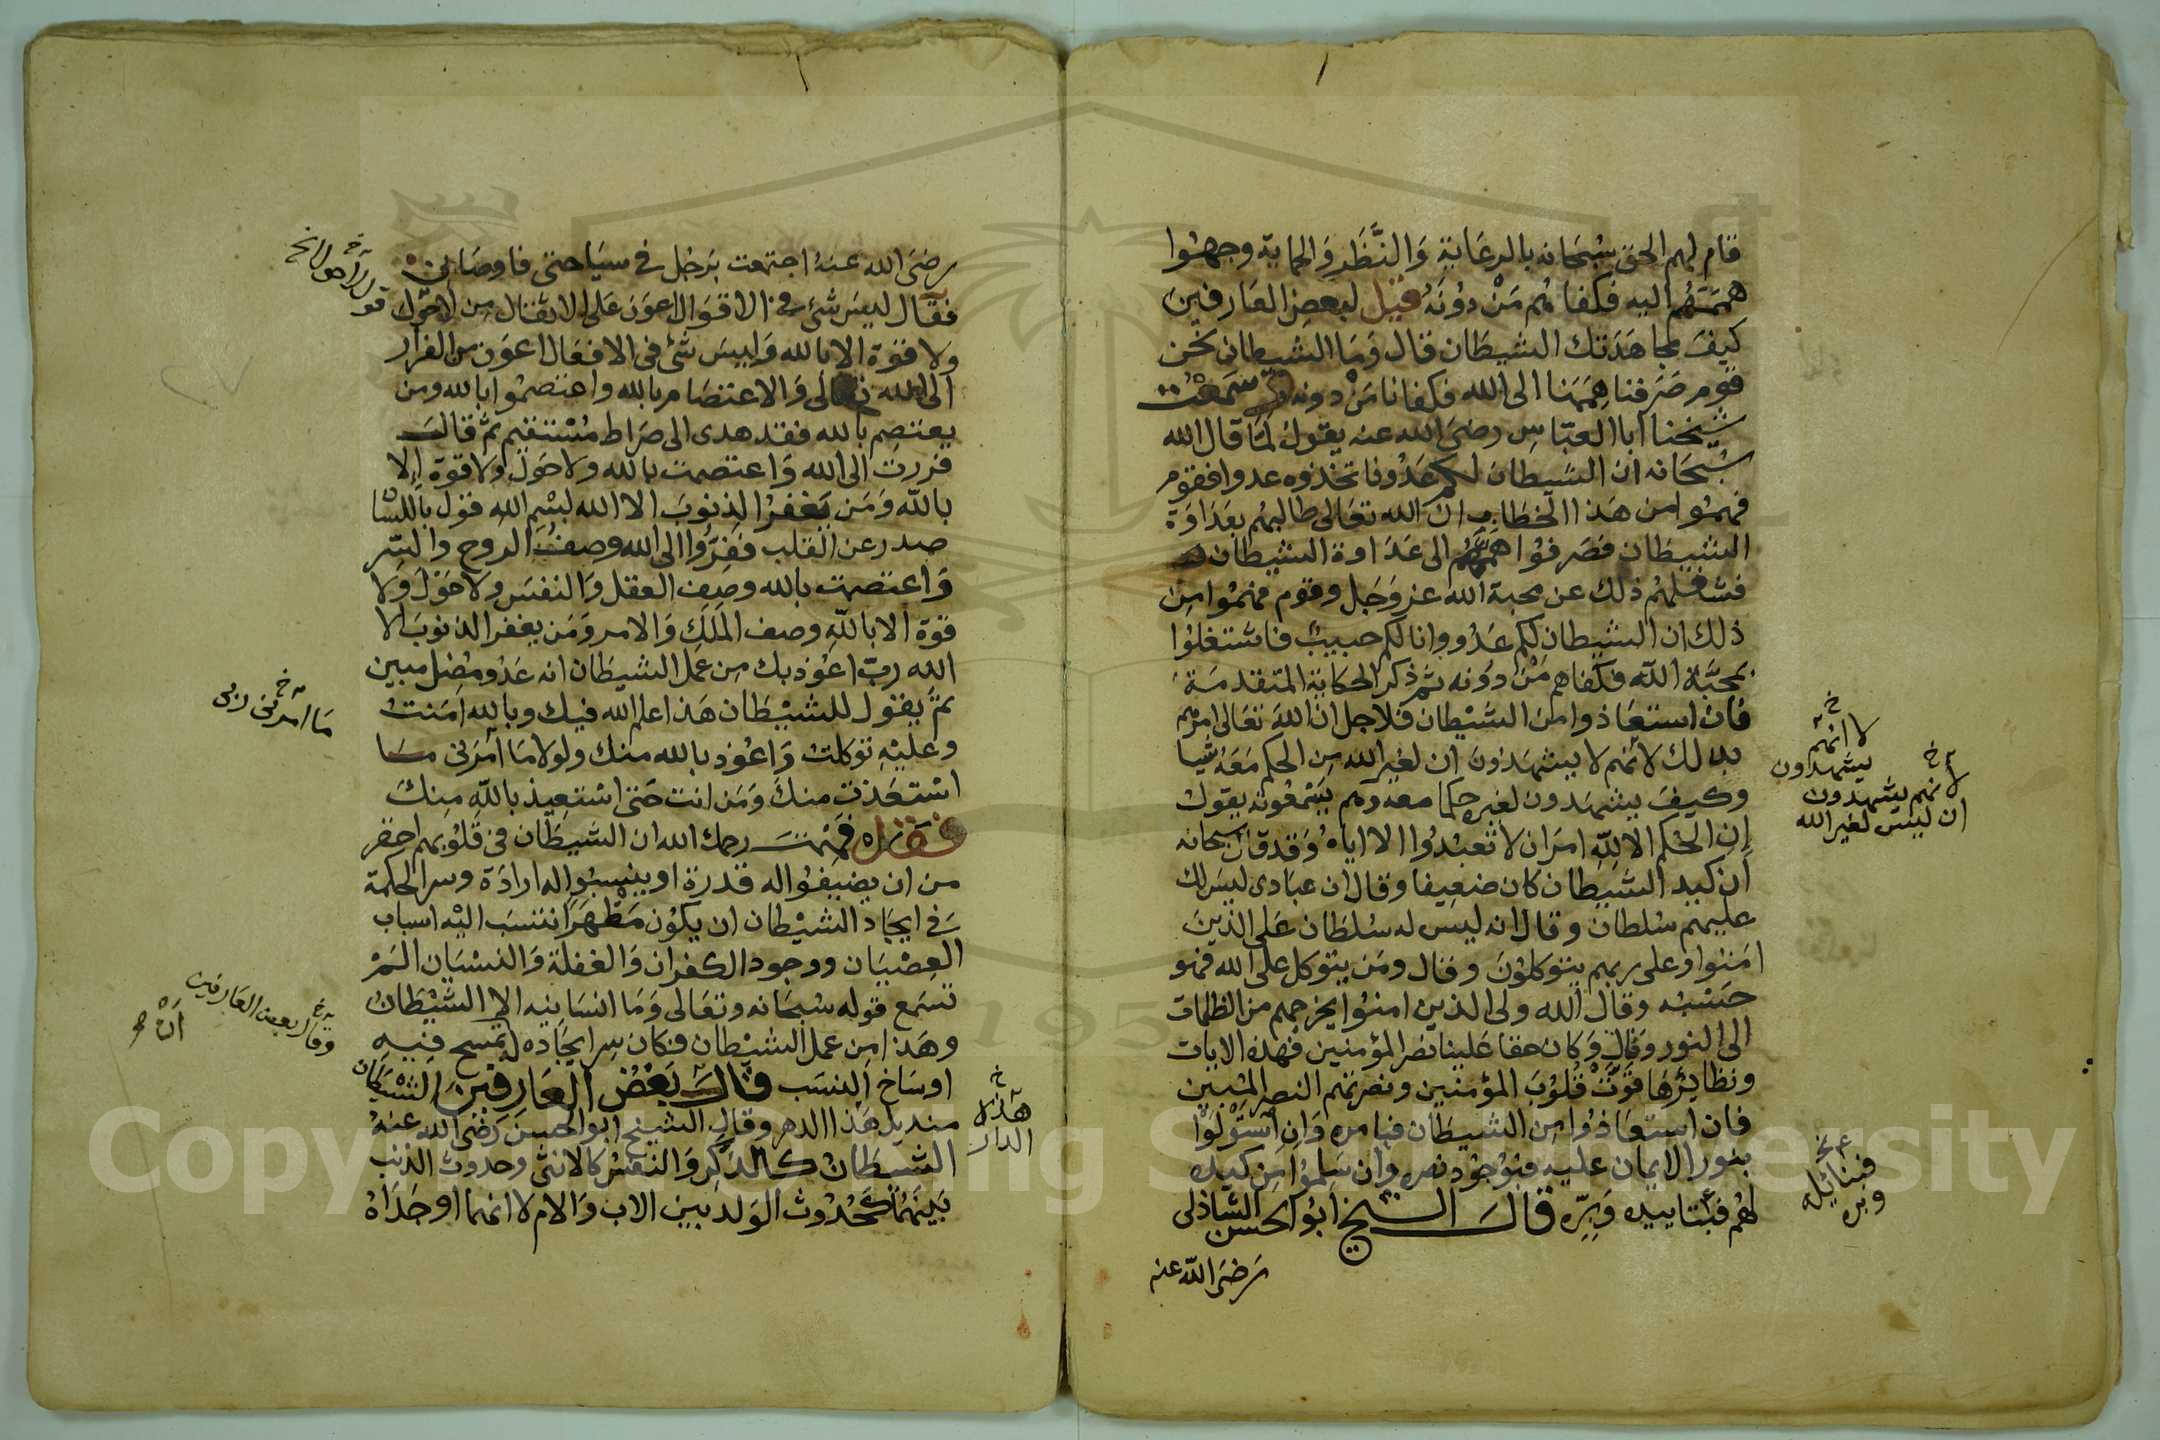 قام لهم الحق سبحانه بالرعاية والنظر والحماية وجهوا
هممهم اليه فكفاهم من دونه قيل لبعض العارفين
كيف مجاهدتك الشيطان قال وما الشيطان نحن
قوم صرفنا هممنا الى الله فكفانا من دونه سمعت
شيخنا ابا العباس رضي الله عنه يقول لما قال الله
سبحانه ان الشيطان لكم عدو فاتخذوه عدوا فقوم
فهموا من هذا الخطاب ان الله تعالى طالبهم بعداوة
الشيطان فصرفوا هممهم الى عداوة الشيطان
فشغلهم ذلك عن محبة الله عز وجل وقوم فهموا من
ذلك ان الشيطان لكم عدو وانا لكم حبيب فاشتغلوا
بمحبة الله فكفاهم من دونه ثم ذكر الحكاية المتقدمة
فان استعاذوا من الشيطان فلاجل ان الله تعالى امرهم
بذلك لانهم لا يشهدون ان لغير الله من الحكم معه شيا
وكيف يشهدون لغيره حكما معه وهم يسمعونه يقول
ان الحكم الا لله امر ان لا تعبدوا الا اياه وقد قال سبحانه
ان كيد الشيطان كان ضعيفا وقال ان عبادي ليس لك
عليهم سلطان وقال انه ليس له سلطان على الذين
امنوا وعلى ربهم يتوكلون وقال ومن يتوكل على الله فهو
حسبه وقال الله ولي الذين امنوا يخرجهم من الظلمات
الى النور وقال وكان حقا علينا نصر المؤمنين فهذه الايات
ونظايرها قوت قلوب المؤمنين ونصرتهم النصر المبين
فان استعاذوا من الشيطان فبامره وان استولوا
بنور الايمان عليه فبوجود نصره وان سلموا من كيده
لهم فبتاييده وبره قال الشيخ ابو الحسن الشاذلي
رضي الله عنه
لا انهم
يشهدون
لانهم يشهدون
ان ليس لغير الله
وبره
رضي الله عنه اجتمعت برجل في سياحتي فاوصاني
فقال ليس شئ في الاقوال اعون على الافعال من لا حول
ولا قوة الا بالله وليس شئ في الافعال اعون من الفرار
الى الله تعالى والاعتصام بالله واعتصموا بالله ومن
يعتصم بالله فقد هدى الى صراط مستقيم ثم قال
فررت الى الله واعتصمت بالله ولا حول ولا قوة الا
بالله ومن يغفر الذنوب الا الله بسم الله قول باللسا
صدر عن القلب ففروا الى الله وصف الروح والسر
واعتصمت بالله وصف العقل والنفس ولا حول ولا
قوة الا بالله وصف الملك والامر ومن يغفر الذنوب الا
الله رب اعوذ بك من عمل الشيطان انه عدو مضل مبين
ثم يقول للشيطان هذا علم الله فيك وبالله امنت
وعليه توكلت واعوذ بالله منك ولولا ما امرني ما
استعذت منك ومن انت حتى استعيذ بالله منك
فقد فهمت رحمك الله ان الشيطان في قلوبهم احقر
من ان يضيفوا له قدرة او ينسبوا له ارادة وسر الحكمة
في ايجاد الشيطان ان يكون مظهرا تنسب اليه اسباب
العصيان ووجود الكفران والغفلة والنسيان الم
تسمع قوله سبحانه وتعالى وما انسانيه الا الشيطان
وهذا من عمل الشيطان فكان سر ايجاده ليمسح فيه
اوساخ النسب قال بعض العارفين الشيطان
منديل هذا الدهر وقال الشيخ ابو الحسن رضي الله عنه
الشيطان كالذكر والنفس كالانثى وحدوث الذنب
بينهما كحدوث الولد بين الاب والام لا انهما اوجداه
ما امرني ربي
وقال بعض العارفين
ان
هذه
الدار